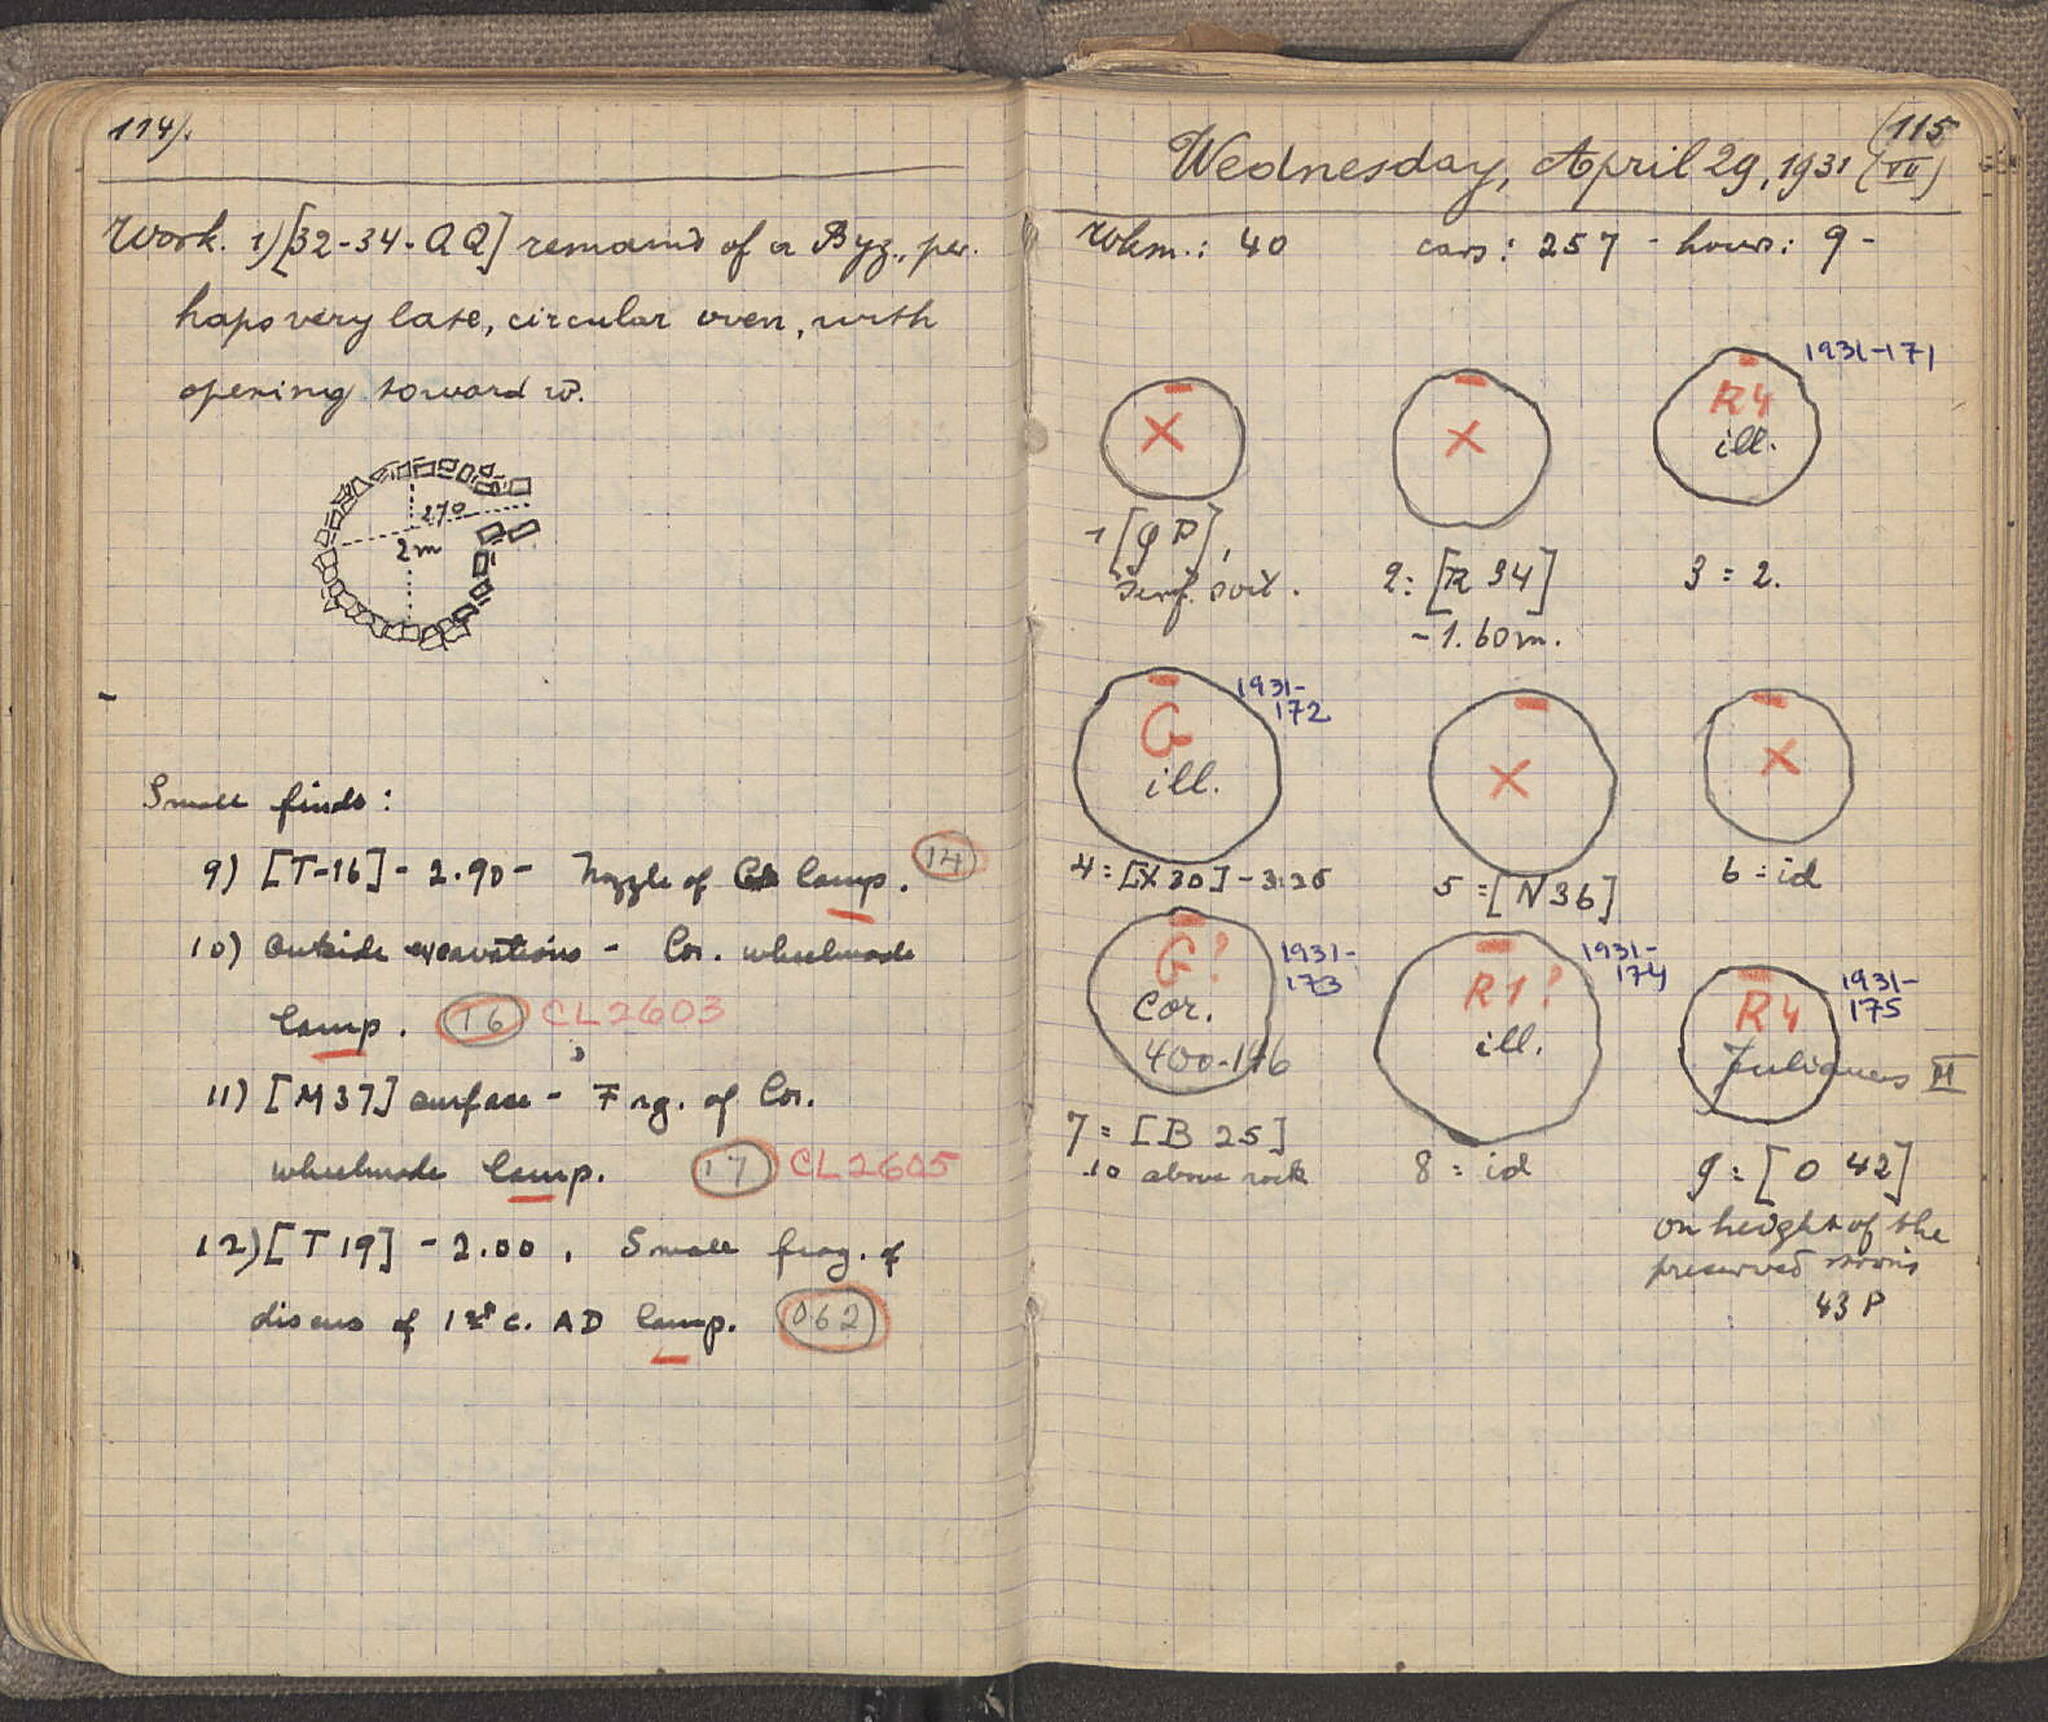 114).
Work. 1) [32-34-QQ] remains of a Byz., per-
haps very late, circular oven, with
opening toward W.
270
2 m
Small finds:
9) [T-16] - 2.90 - Nozzle of lamp. 14
10) Outside excavations - Cor. wheelmade
lamp. 16 CL2603
11) [M 37] surface - Frg. of Cor.
wheelmade lamp. 17 CL2605
12) [T 19] - 2.00. Small frag. of
discus of 1st c. AD lamp. 062
(115
Wednesday, April 29, 1931 (VII)
Wkm.: 40 cars: 257 - hours: 9 -
X
X
R4
ill.
1931-171
1 [QP],
surf. soil.
2: [R 34]
-1.60 m.
3 = 2.
G
ill.
1931-
172
X
X
4 = [X 30] - 3.25
5 = [N 36]
6 = id
G?
Cor.
400-146
1931-
173
R1?
ill.
1931-
174
R4
Julianus II
1931-
175
7 = [B 25]
.10 above rock
8 = id
9 = [O 42]
on height of the
preserved
43 P